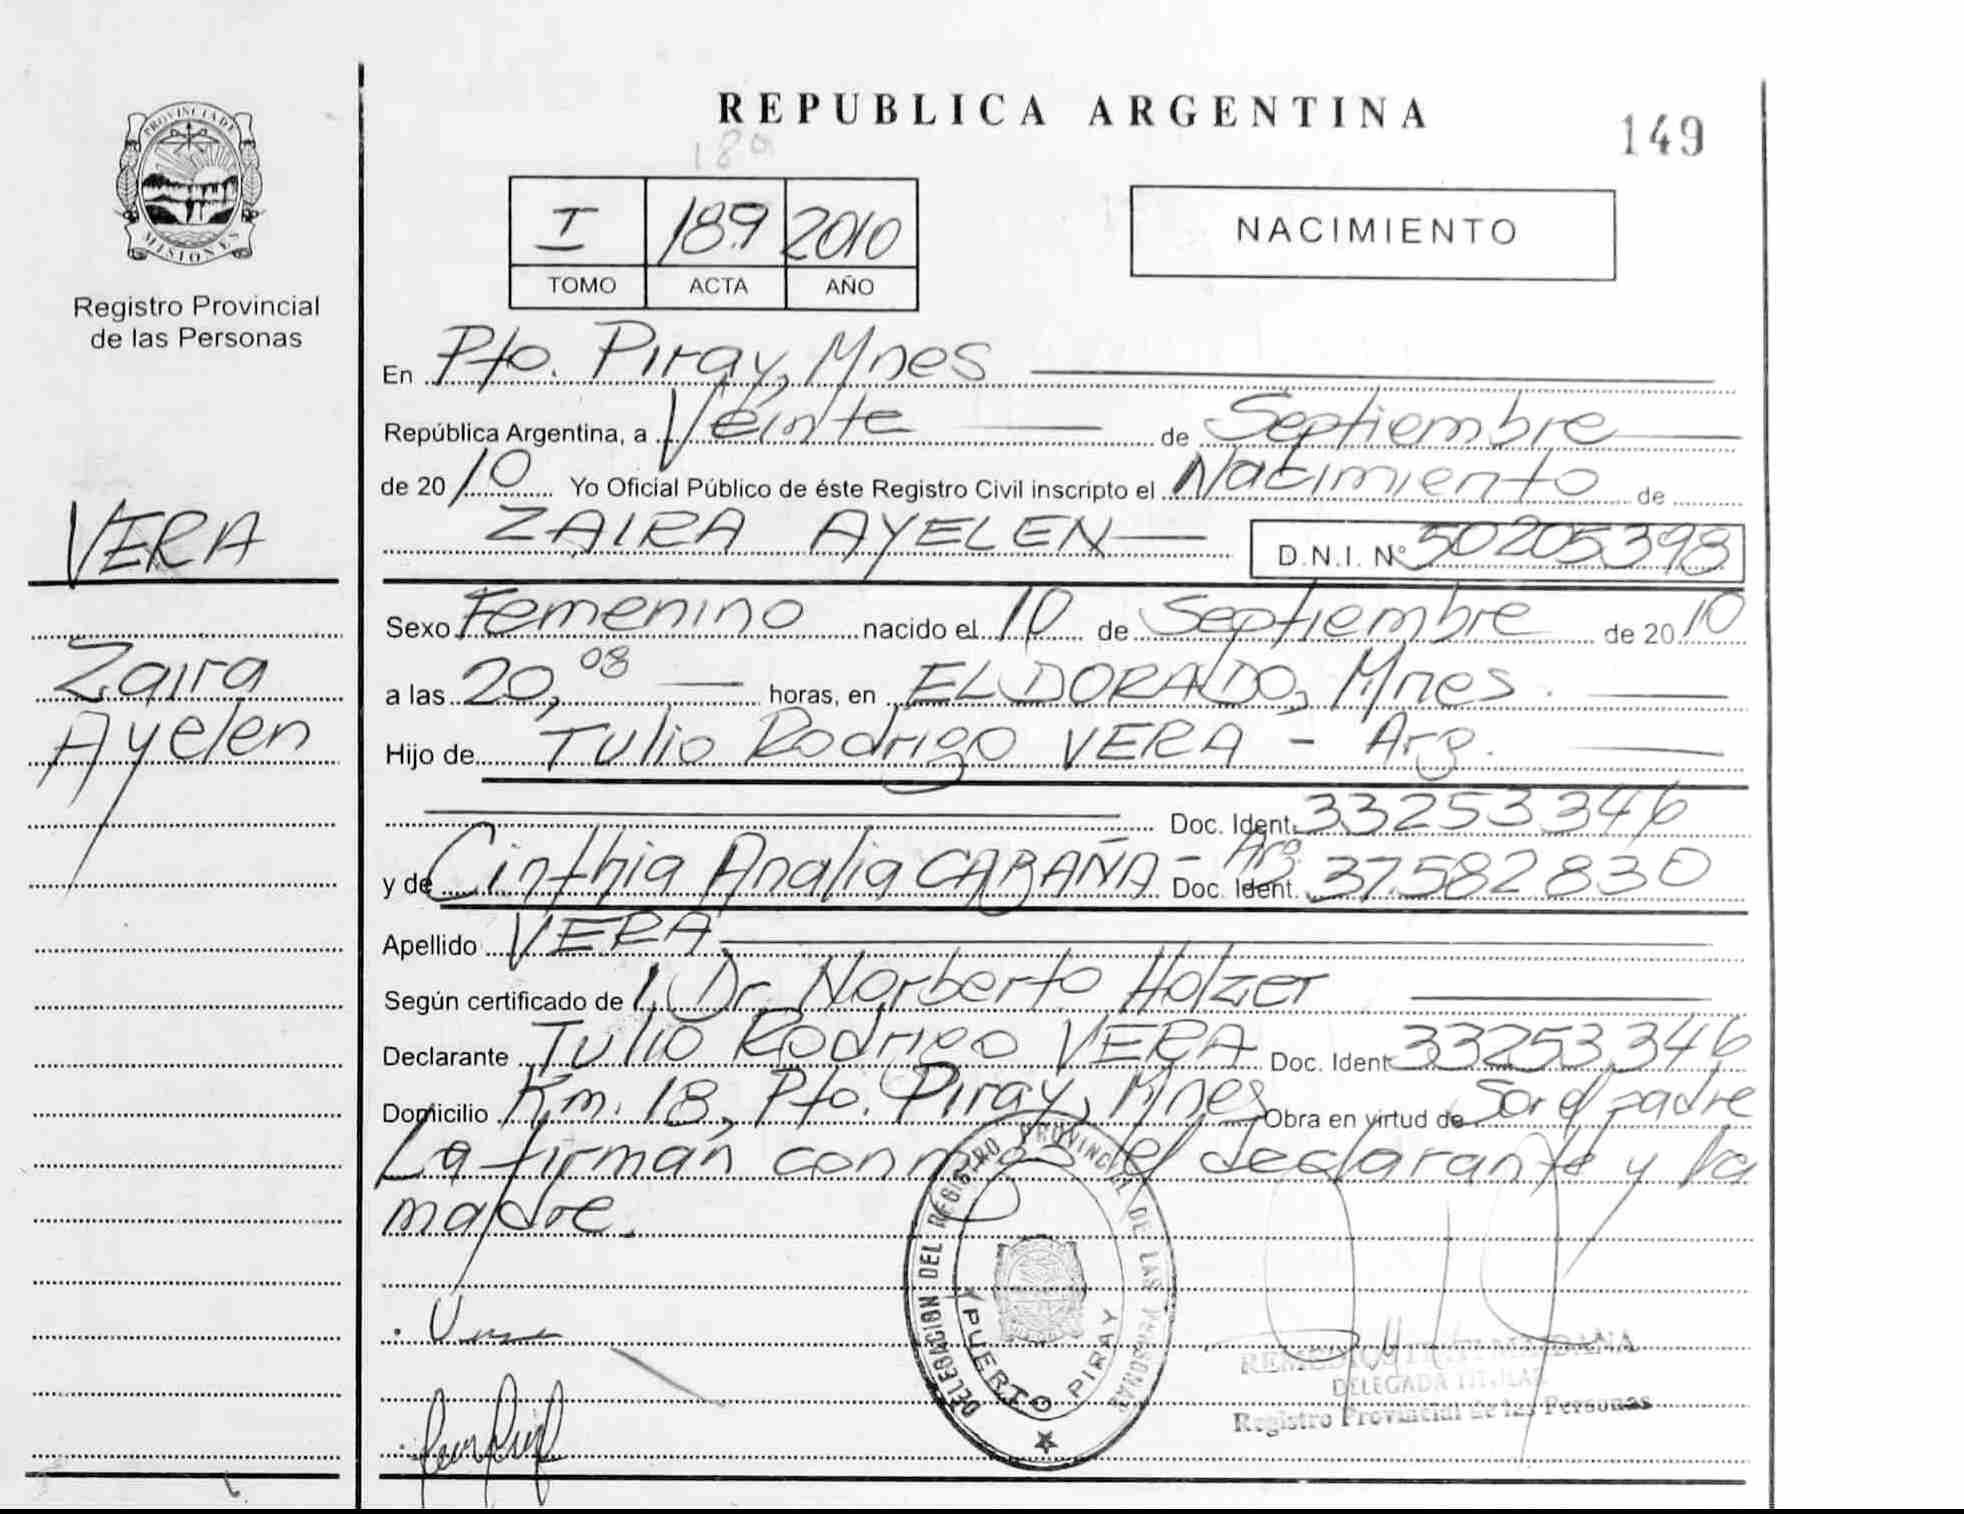 REPUBLICA ARGENTINA
149
189
PROVINCIA DE
MISIONES
Registro Provincial
de las Personas
I 189 2010
TOMO ACTA AÑO
NACIMIENTO
En Pto. Piray, Mnes
República Argentina, a Veinte de Septiembre
de 2010 Yo Oficial Público de éste Registro Civil inscripto el Nacimiento de
ZAIRA AYELEN D.N.I. Nº 50205398
VERA
Zaira
Ayelen
Sexo Femenino nacido el 10 de Septiembre de 2010
a las 20,08 horas, en ELDORADO, Mnes.
Hijo de Tulio Rodrigo VERA - Arg.
Doc. Ident. 33253346
y de Cinthia Analia CABAÑA - Arg. Doc. Ident. 37.582830
Apellido VERA
Según certificado de Dr. Norberto Holzer
Declarante Tulio Rodrigo VERA Doc. Ident 33253.346
Domicilio Km. 18, Pto. Piray, Mnes Obra en virtud de Ser el padre
La firman conmigo el declarante y la
madre.
DELEGACION DEL REGISTRO PROVINCIAL DE LAS PERSONAS
PUERTO PIRAY
DELEGADA TITULAR
Registro Provincial de las Personas